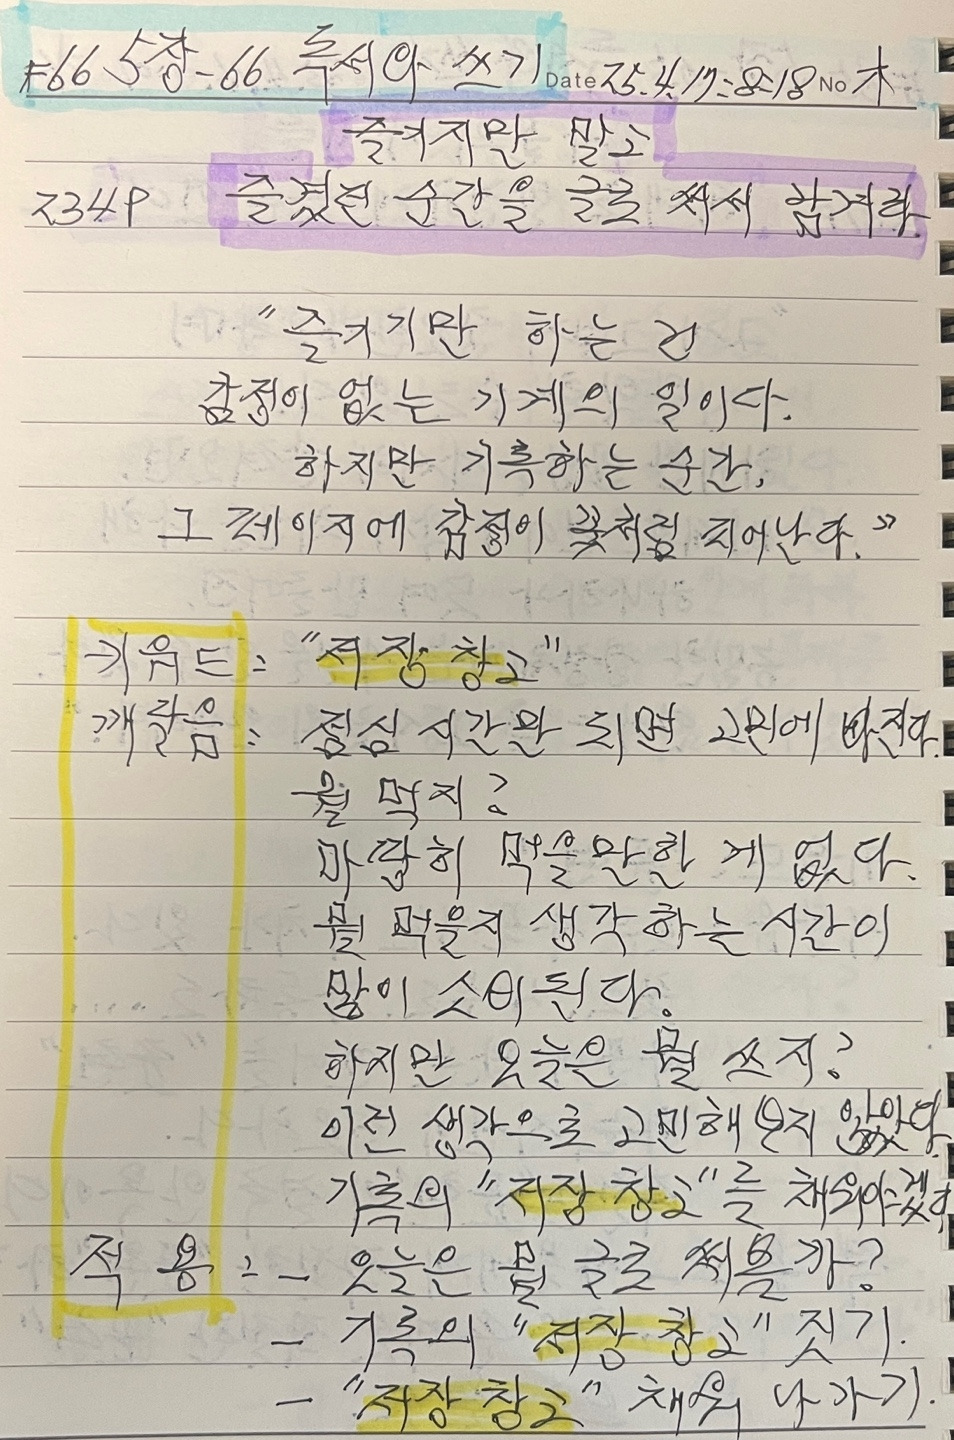 #66 5장-66 독서와 쓰기 Date 25.4.17-8:18 No 木
즐기지만 말고
234P 즐겼던 순간을 글로 써서 남겨라.
"즐기기만 하는 건
감정이 없는 기계의 일이다.
하지만 기록하는 순간,
그 페이지에 감정이 꽃처럼 피어난다."
키워드: "저장 창고"
깨달음: 점심 시간만 되면 고민에 빠진다.
뭘 먹지?
마땅히 먹을만한 게 없다.
뭘 먹을지 생각하는 시간이
많이 소비된다.
하지만 오늘은 뭘 쓰지?
이런 생각으로 고민해 보지 않았다.
기록의 "저장 창고"를 채워야겠다
적용: - 오늘은 뭘 글로 써볼까?
- 기록의 "저장 창고" 짓기.
- "저장 창고" 채워 나가기.